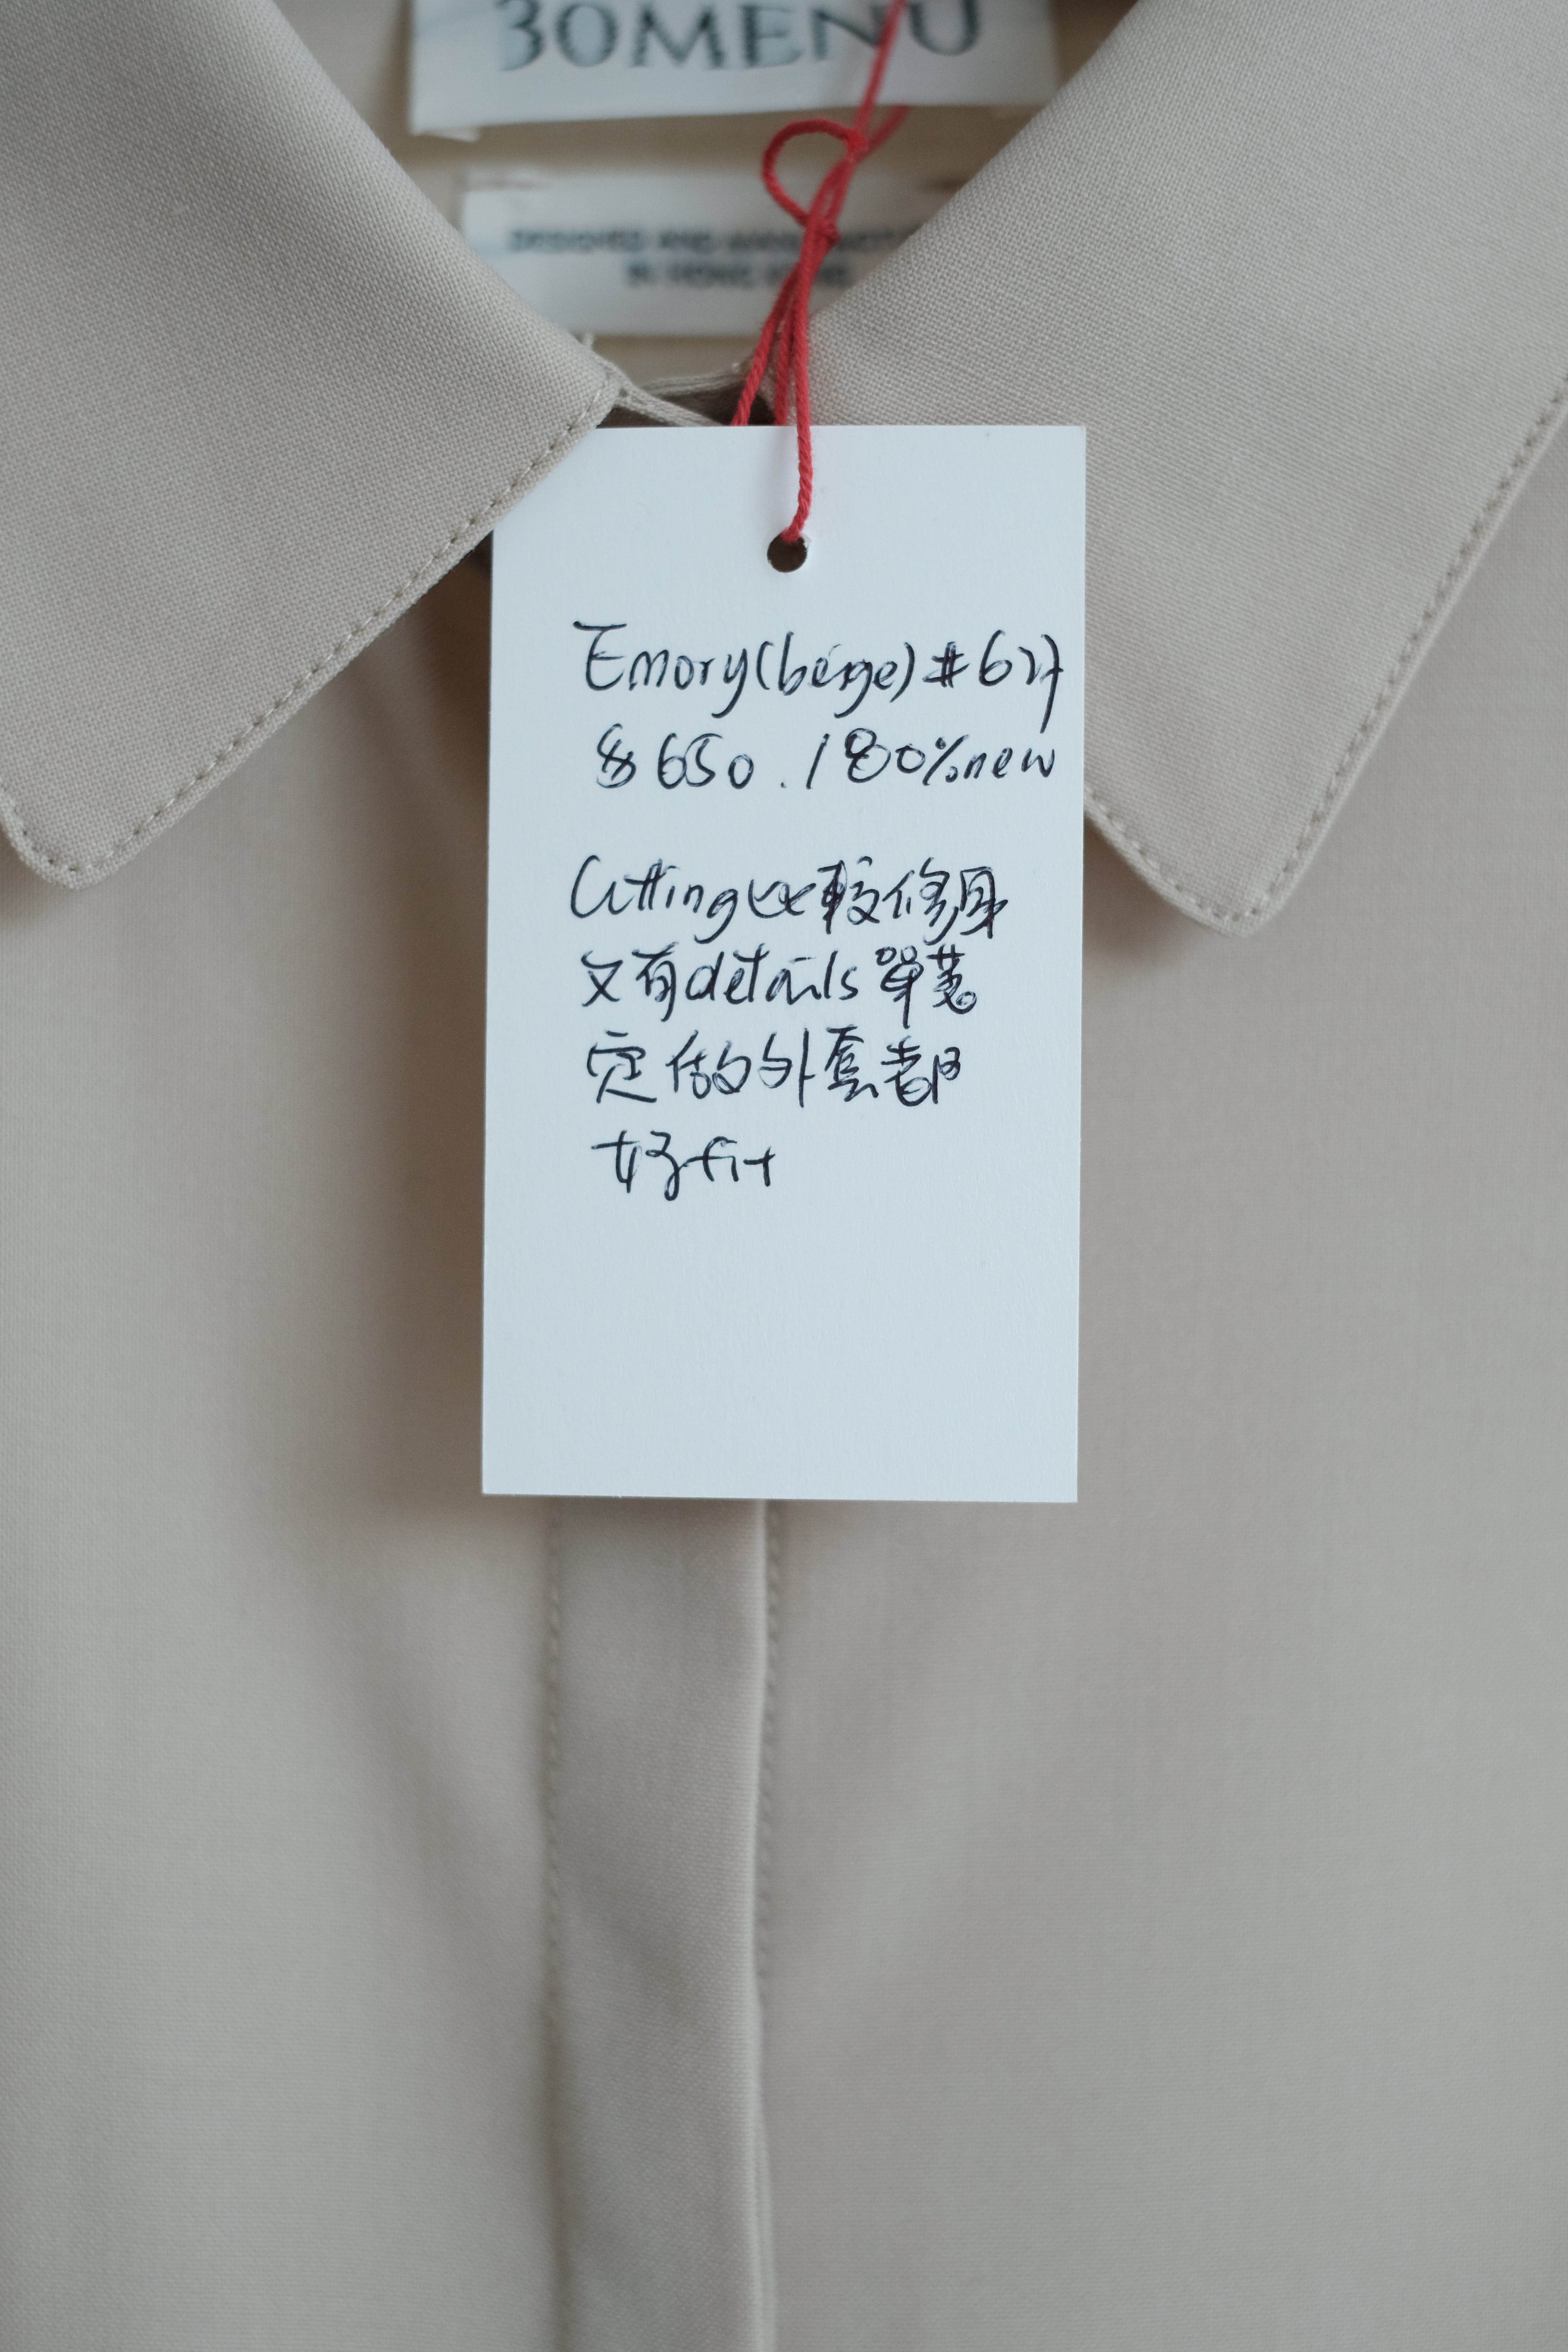 30MENU
DESIGNED AND
IN HONG KONG
Emory (beige) #627
$650 . / 80% new
Cutting比較修身
又有details單著
定做的外套都
好fit